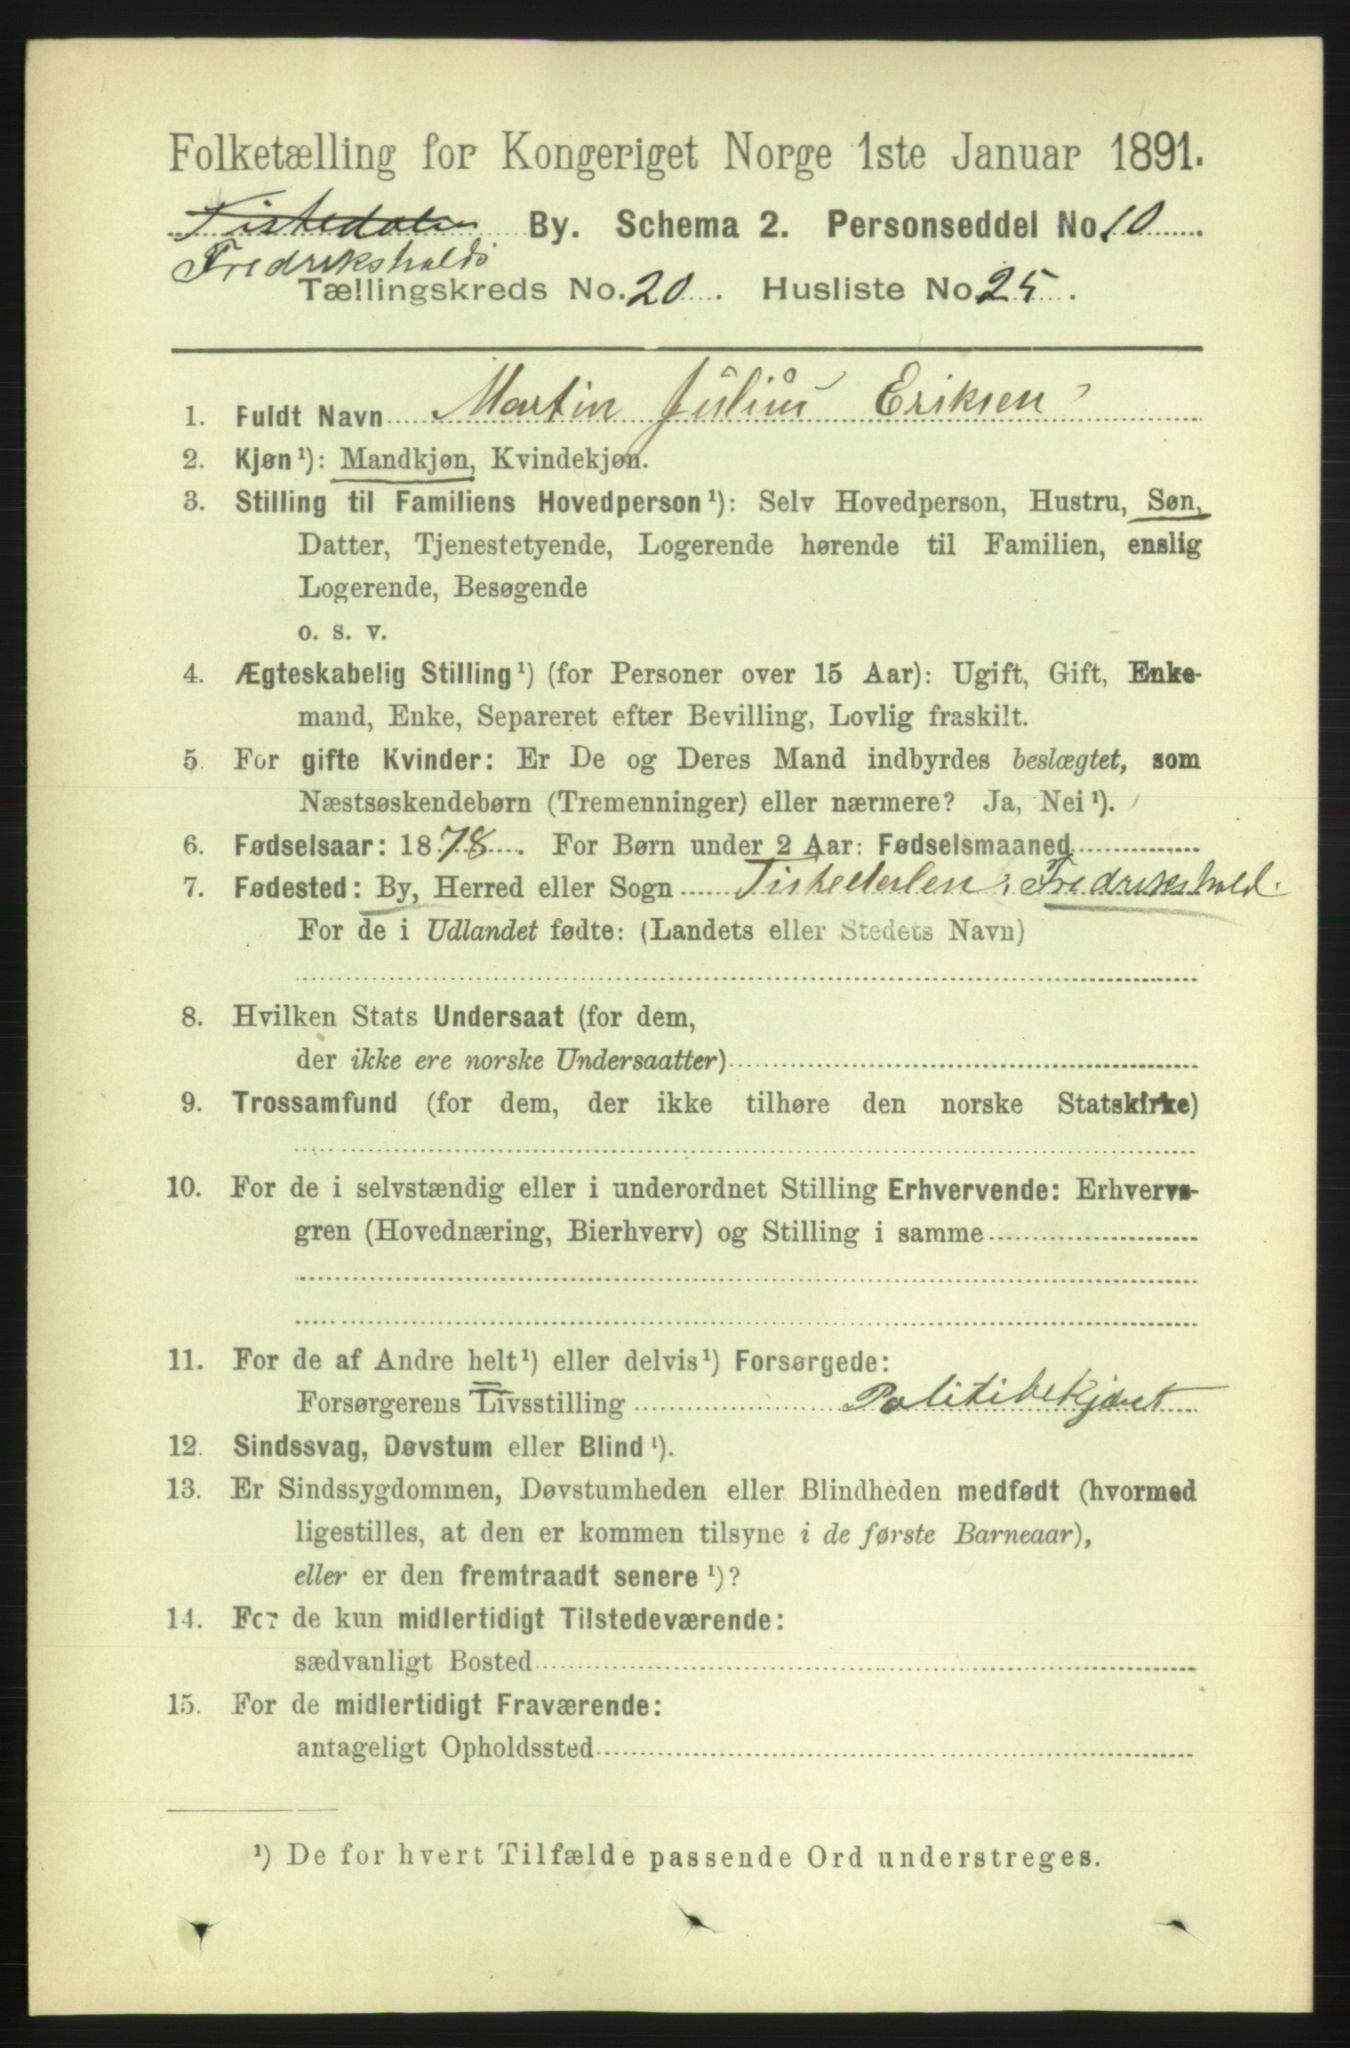 Folketælling for Kongeriget Norge 1ste Januar 1891.
Tistedalen By. Schema 2. Personseddel No. 10
Fredrikshalds
Tællingskreds No. 20. Husliste No. 25.
1. Fuldt Navn Martin Julius Eriksen
2. Kjøn¹): Mandkjøn, Kvindekjøn.
3. Stilling til Familiens Hovedperson¹): Selv Hovedperson, Hustru, Søn,
Datter, Tjenestetyende, Logerende hørende til Familien, enslig
Logerende, Besøgende
o. s. v.
4. Ægteskabelig Stilling¹) (for Personer over 15 Aar): Ugift, Gift, Enke-
mand, Enke, Separeret efter Bevilling, Lovlig fraskilt.
5. For gifte Kvinder: Er De og Deres Mand indbyrdes beslægtet, som
Næstsøskendebørn (Tremenninger) eller nærmere? Ja, Nei¹).
6. Fødselsaar: 1878. For Børn under 2 Aar: Fødselsmaaned
7. Fødested: By, Herred eller Sogn Tistedalen, Fredrikshald.
For de i Udlandet fødte: (Landets eller Stedets Navn)
8. Hvilken Stats Undersaat (for dem,
der ikke ere norske Undersaatter)
9. Trossamfund (for dem, der ikke tilhøre den norske Statskirke)
10. For de i selvstændig eller i underordnet Stilling Erhvervende: Erhvervs-
gren (Hovednæring, Bierhverv) og Stilling i samme
11. For de af Andre helt¹) eller delvis¹) Forsørgede:
Forsørgerens Livsstilling Politibetjent
12. Sindssvag, Døvstum eller Blind¹).
13. Er Sindssygdommen, Døvstumheden eller Blindheden medfødt (hvormed
ligestilles, at den er kommen tilsyne i de første Barneaar),
eller er den fremtraadt senere¹)?
14. For de kun midlertidigt Tilstedeværende:
sædvanligt Bosted
15. For de midlertidigt Fraværende:
antageligt Opholdssted
¹) De for hvert Tilfælde passende Ord understreges.